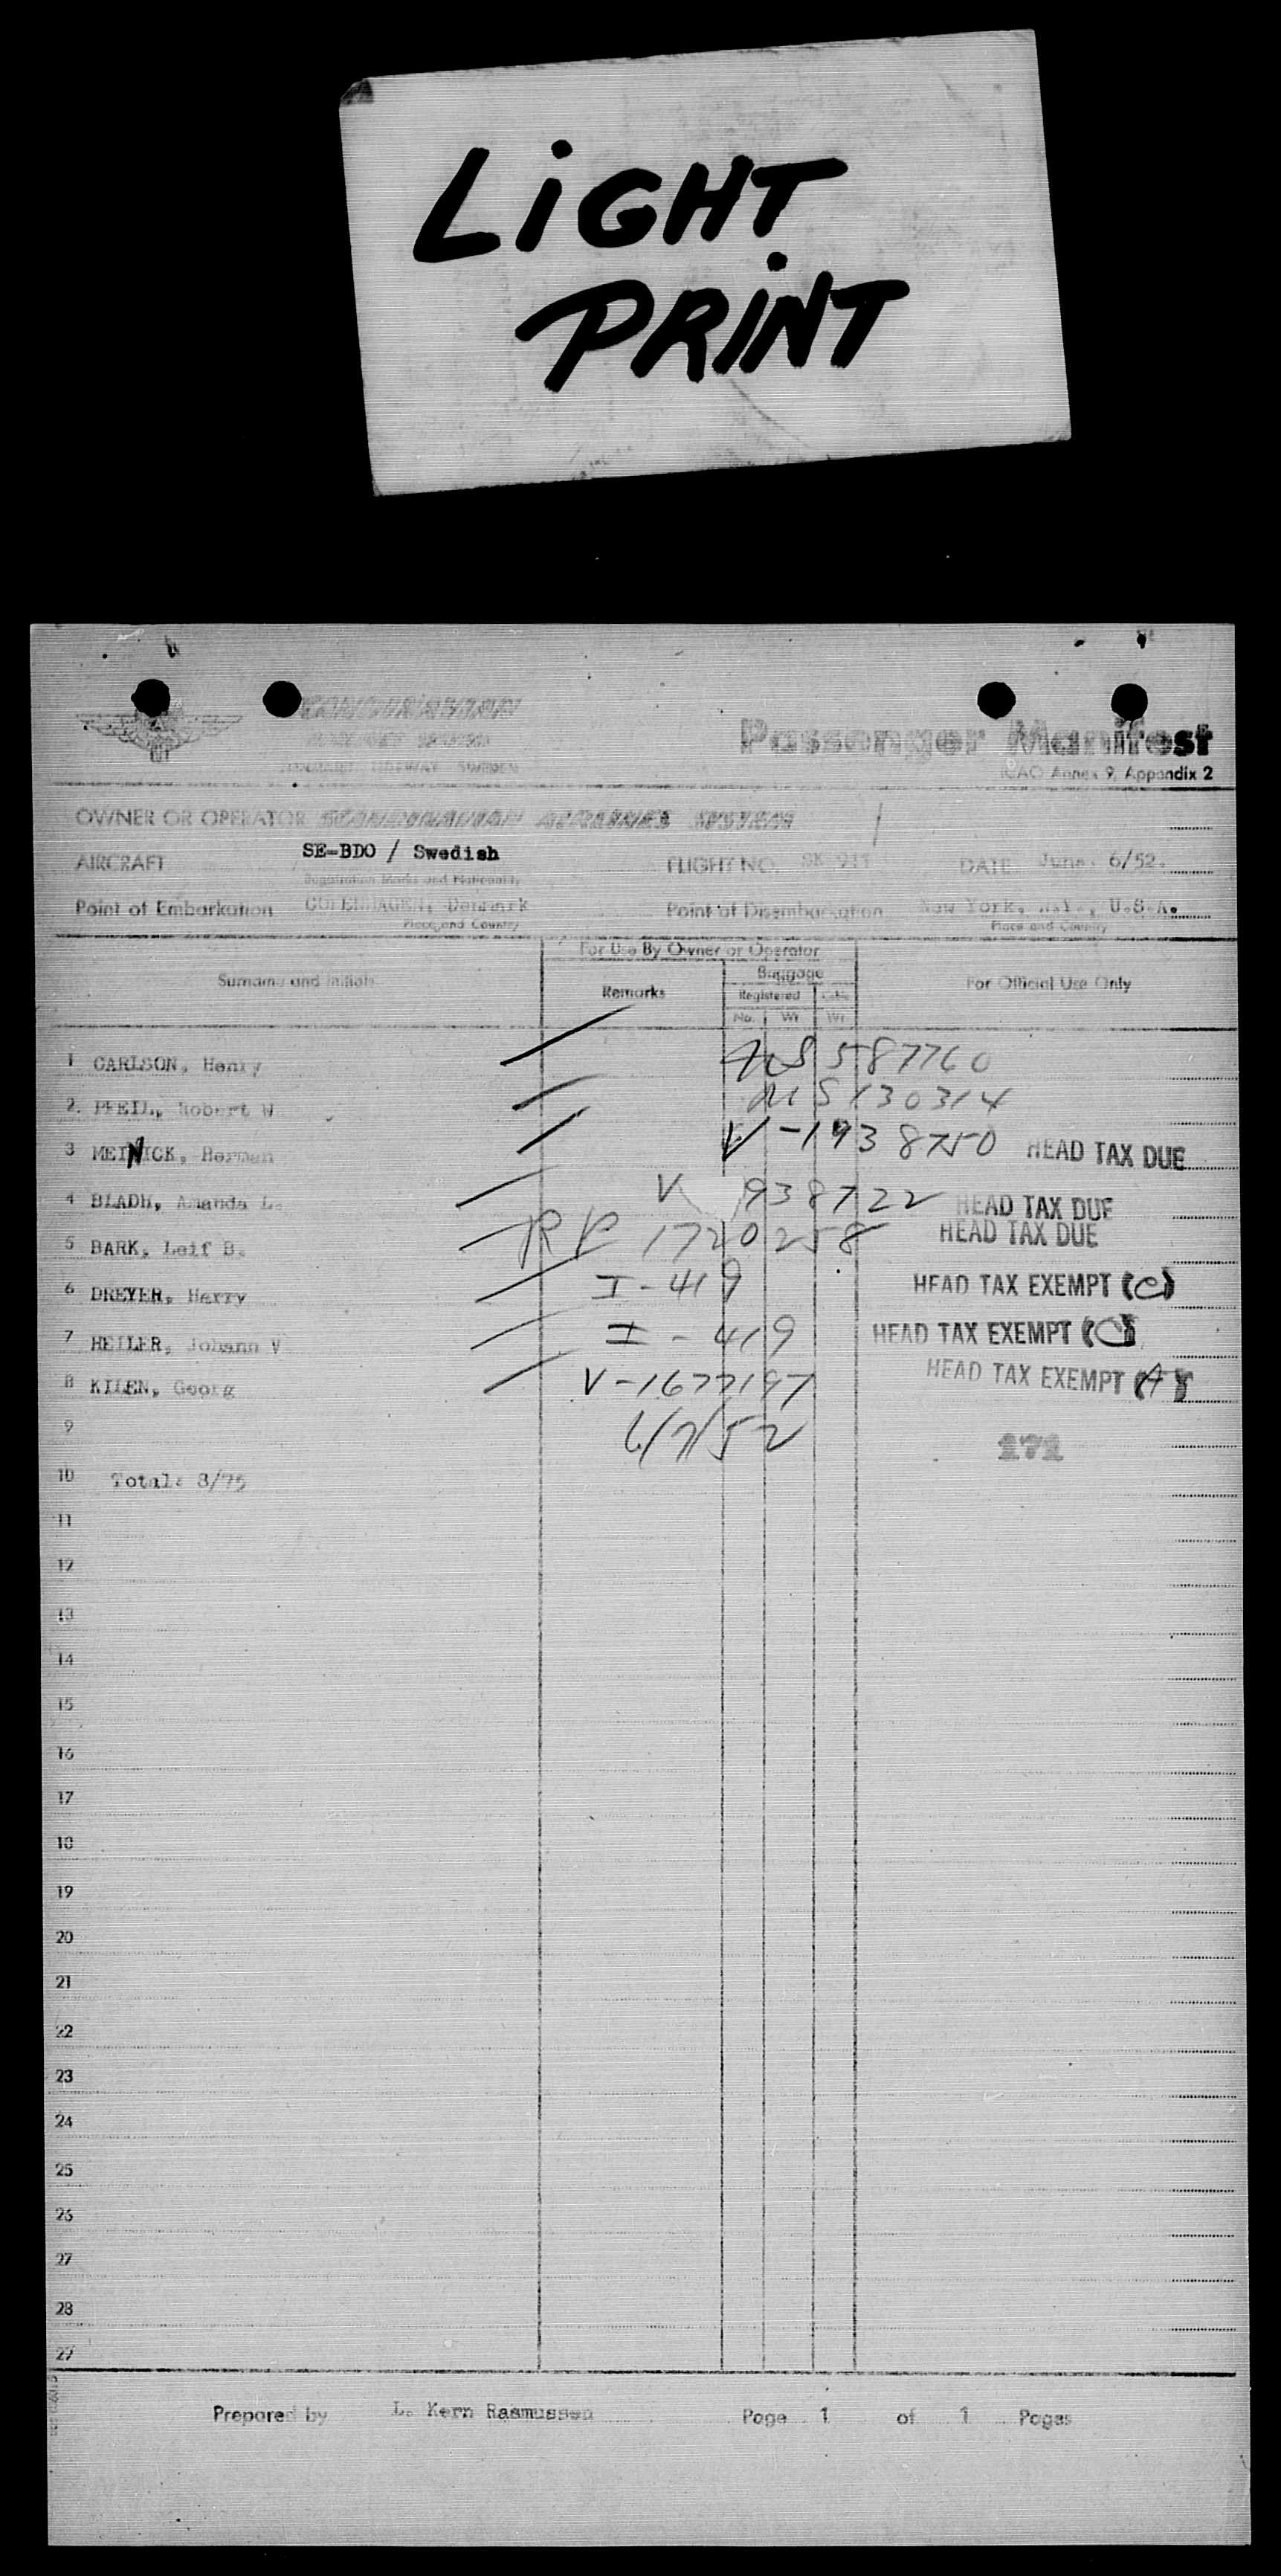 LiGHT
PRiNT
SCANDINAVIAN
AIRLINES SYSTEM
DENMARK NORWAY SWEDEN
Passenger Manifest
ICAO Annex 9, Appendix 2
OWNER OR OPERATOR SCANDINAVIAN AIRLINES SYSTEM
AIRCRAFT SE-BDO / Swedish FLIGHT NO. SK 911 DATE June. 6/52.
Registration Marks and Nationality
Point of Embarkation COPENHAGEN, Denmark Point of Disembarkation New York, N.Y., U.S.A.
Place and Country Place and Country
For Use By Owner or Operator
Surname and Initials Remarks Baggage For Official Use Only
Registered Cabin
No. Wt Wt
1 CARLSON, Henry 587760
2. PFEIL, Robert W. 130314
3 MEINICK, Herman V-1938750 HEAD TAX DUE
4 BLADH, Amanda L. V 938722 HEAD TAX DUE
5 BARK, Leif B. RP 1720258 HEAD TAX DUE
6 DREYER, Harry I-419 HEAD TAX EXEMPT (C)
7 HEILER, Johann V. I-419 HEAD TAX EXEMPT (C)
8 KILEN, Georg V-1677197 HEAD TAX EXEMPT (A)
9 6/7/52 171
10 Total: 8/75
11
12
13
14
15
16
17
18
19
20
21
22
23
24
25
26
27
28
29
Prepared by L. Kern Rasmussen Page 1 of 1 Pages